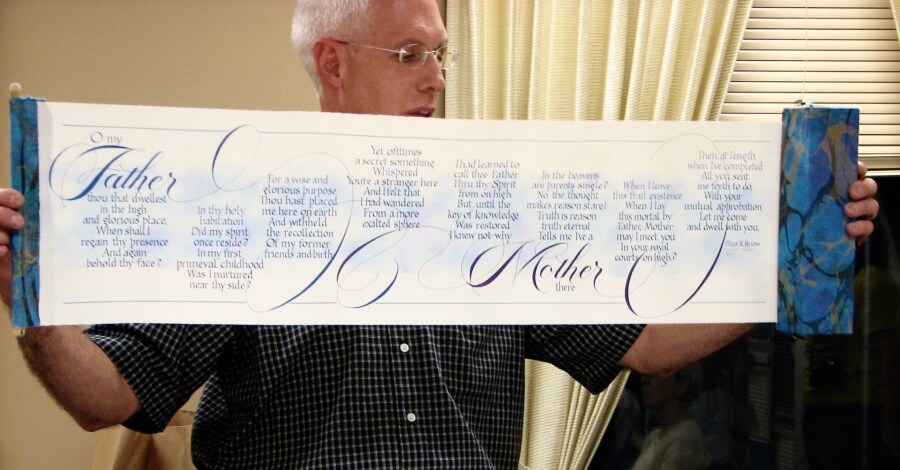 O my
Father
thou that dwellest
in the high
and glorious place,
When shall I
regain thy presence
And again
behold thy face?
In thy holy
habitation
Did my spirit
once reside?
In my first
primeval childhood
Was I nurtured
near thy side?
For a wise and
glorious purpose
Thou hast placed
me here on earth
And withheld
the recollection
Of my former
friends and birth
Yet ofttimes
a secret something
Whispered
You're a stranger here
And I felt that
I had wandered
From a more
exalted sphere
I had learned to
call thee Father
Thru thy Spirit
from on high
But, until the
key of knowledge
Was restored
I knew not why
In the heavens
are parents single?
No, the thought
makes reason stare!
Truth is reason
truth eternal
Tells me I've a
Mother
there
When I leave
this frail existence
When I lay
this mortal by
Father, Mother
may I meet you
In your royal
courts on high?
Then, at length
when I've completed
All you sent
me forth to do,
With your
mutual approbation
Let me come
and dwell with you.
ELIZA R. SNOW